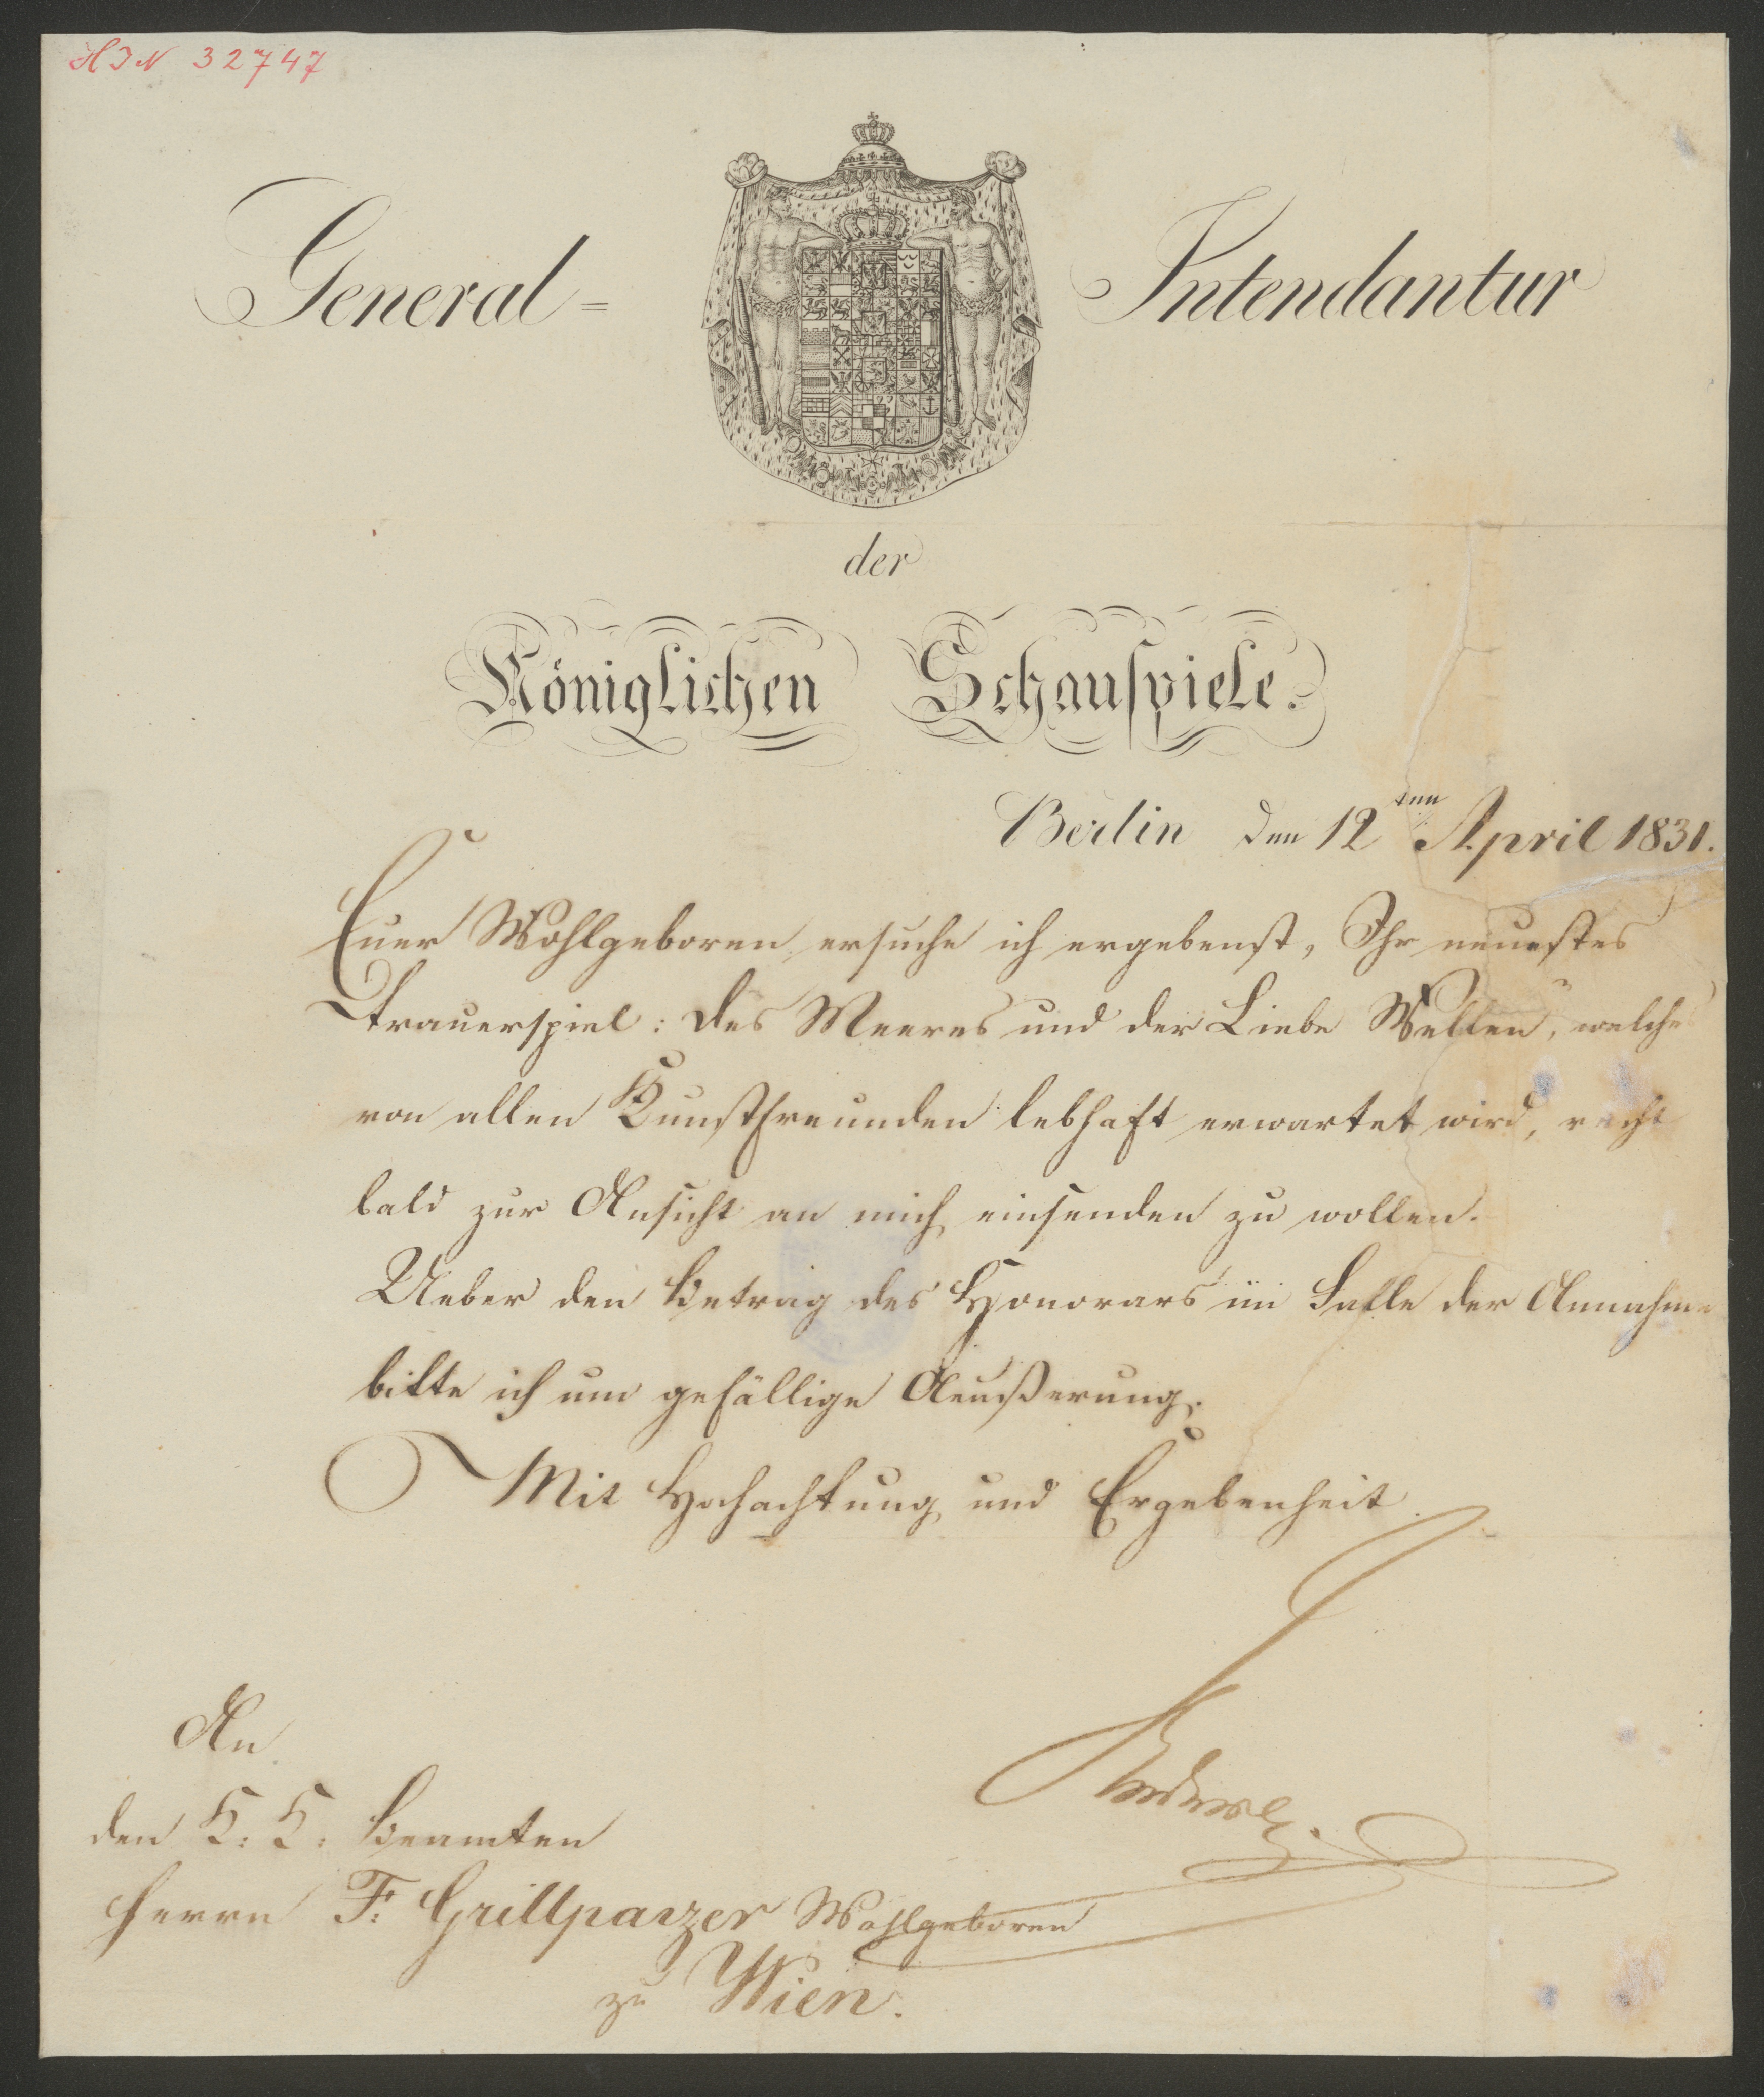 HIN 32747
General-
Intendantur
der
Königlichen Schauspiele.
Berlin den 12ten April 1831.
Euer Wohlgeboren ersuche ich ergebenst, Ihr neuestes
Trauerspiel: des Meeres und der Liebe Wellen", welches
von allen Kunstfreunden lebhaft erwartet wird, recht
bald zur Ansicht an mich einsenden zu wollen.
Ueber den Betrag des Honorars im Falle der Annahme
bitte ich um gefällige Aeußerung.
Mit Hochachtung und Ergebenheit
An
den K: K: Beamten
Herrn F: Grillparzer Wohlgeboren
zu Wien.